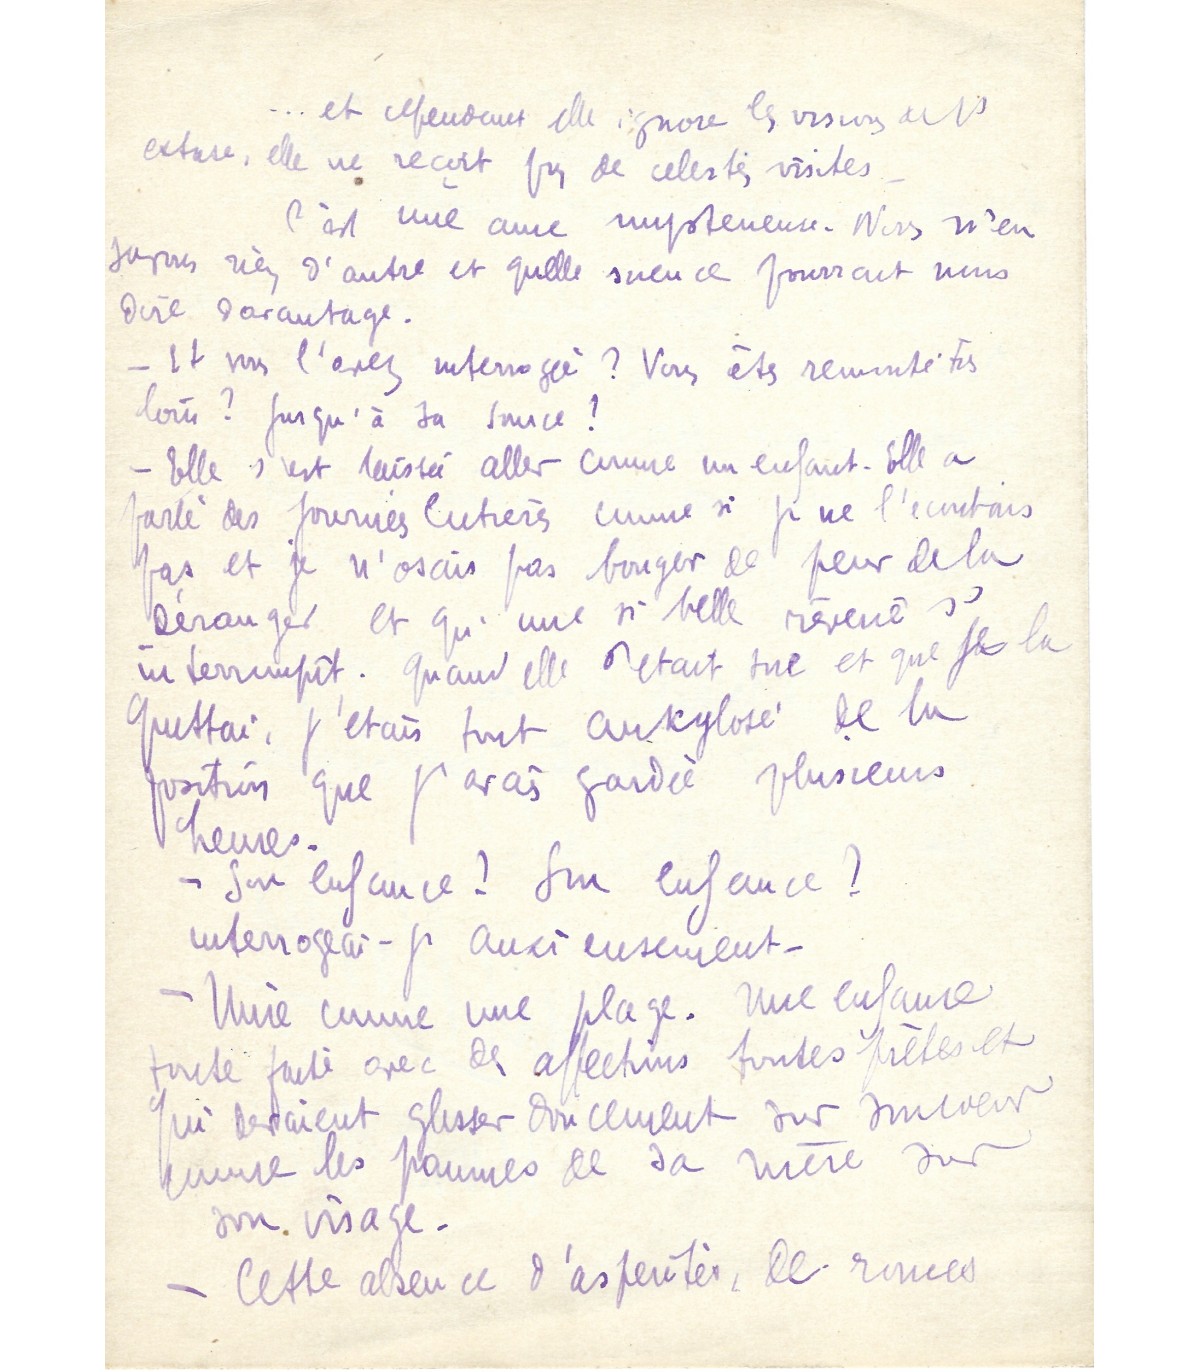 ... et cependant elle ignore les visions de l'
extase, elle ne reçoit pas de celestes visites -
C'est une ame mysterieuse. Nous n'en
savons rien d'autre et quelle science pourrait nous
dire davantage.
- Et vous l'avez interrogée ? Vous êtes remonté très
loin ? Jusqu'à sa source ?
- Elle s'est laissée aller comme un enfant. Elle a
parlé des journées entières comme si je ne l'écoutais
pas et je n'osais pas bouger de peur de la
déranger et qu'une si belle rêverie s'
interrompît. Quand elle s'était tue et que je la
quittai, j'étais tout ankylosé de la
position que j'avais gardée plusieurs
heures.
- Son enfance ? Son enfance ?
interrogeai-je anxieusement -
- Unie comme une plage. Une enfance
toute faite avec des affections toutes prêtes et
qui devaient glisser doucement sur son coeur
comme les paumes de sa mère sur
son visage.
- Cette absence d'aspérités, de ronces